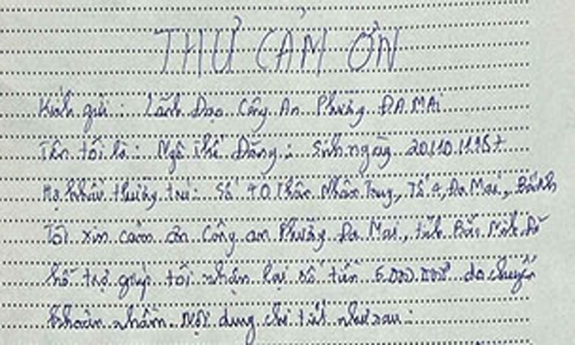 THƯ CẢM ƠN
Kính gửi: Lãnh Đạo Công An Phường ĐA MAI
Tên tôi là: Ngô Thế Đăng: Sinh ngày 20.10.1957
Hộ khẩu thường trú: Số 40 Thân Nhân Trung, Tổ 4, Đa Mai, Bắc Ninh
Tôi xin cảm ơn Công an Phường Đa Mai, tỉnh Bắc Ninh đã
hỗ trợ giúp tôi nhận lại số tiền do chuyển
khoản nhầm. Nội dung chi tiết như sau: